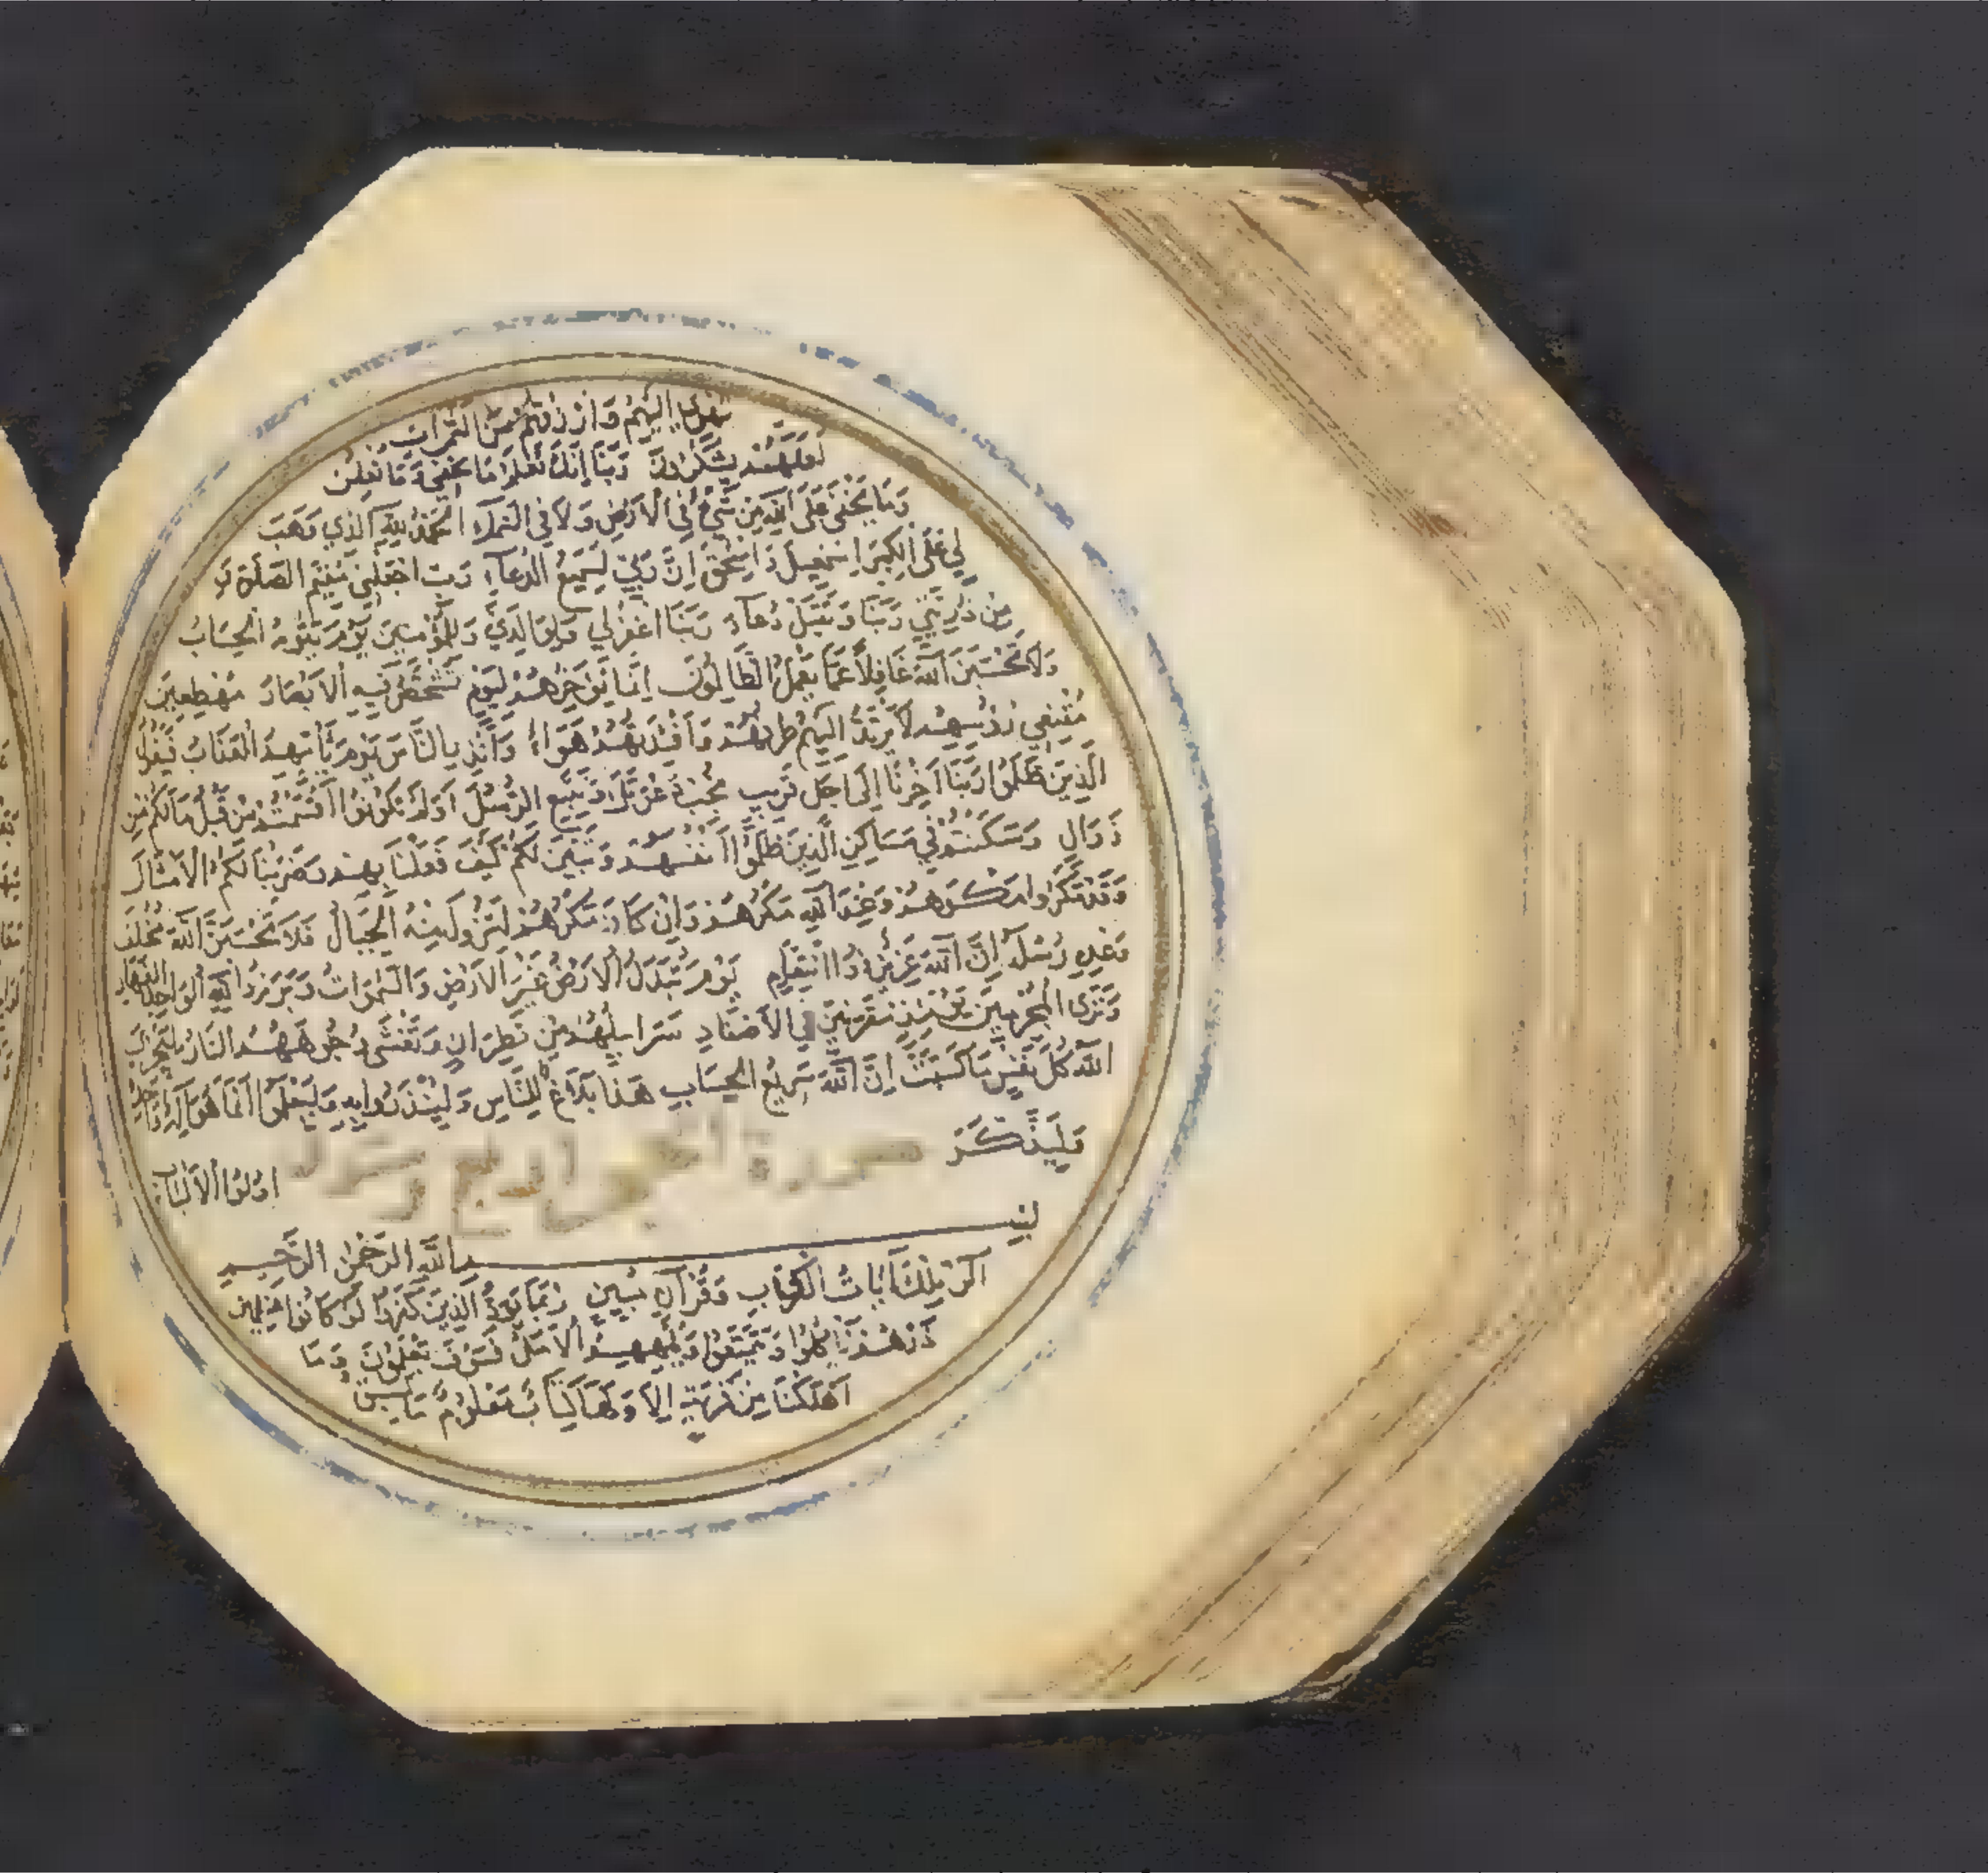 تهوي اليهم وارزقهم من الثمرات
لعلهم يشكرون ربنا انك تعلم ما نخفي وما نعلن
وما يخفى على الله من شيء في الارض ولا في السماء الحمد لله الذي وهب
لي على الكبر اسمعيل واسحق ان ربي لسميع الدعاء رب اجعلني مقيم الصلوة و
من ذريتي ربنا وتقبل دعاء ربنا اغفر لي ولوالدي وللمؤمنين يوم يقوم الحساب
ولا تحسبن الله غافلا عما يعمل الظالمون انما نؤخرهم ليوم تشخص فيه الابصار مهطعين
مقنعي رؤسهم لا يرتد اليهم طرفهم وافئدتهم هواء وانذر الناس يوم يأتيهم العذاب فيقول
الذين ظلموا ربنا اخرنا الى اجل قريب نجب دعوتك ونتبع الرسل اولم تكونوا اقسمتم من قبل مالكم من
زوال وسكنتم في مساكن الذين ظلموا انفسهم وتبين لكم كيف فعلنا بهم وضربنا لكم الامثال
وقد مكروا مكرهم وعند الله مكرهم وان كان مكرهم لتزول منه الجبال فلا تحسبن الله مخلف
وعده رسله ان الله عزيز ذوا انتقام يوم تبدل الارض غير الارض والسموات وبرزوا لله الواحد القهار
وترى المجرمين يومئذ مقرنين في الاصفاد سرابيلهم من قطران وتغشى وجوههم النار ليجزي
الله كل نفس ما كسبت ان الله سريع الحساب هذا بلاغ للناس ولينذروا به وليعلموا انما هو اله واحد
وليذكر
اولوا الالباب
بسم الله الرحمن الرحيم
الر تلك آيات الكتاب وقرآن مبين ربما يود الذين كفروا لو كانوا مسلمين
ذرهم يأكلوا ويتمتعوا ويلههم الامل فسوف يعلمون وما
اهلكنا من قرية الا ولها كتاب معلوم ما تسبق